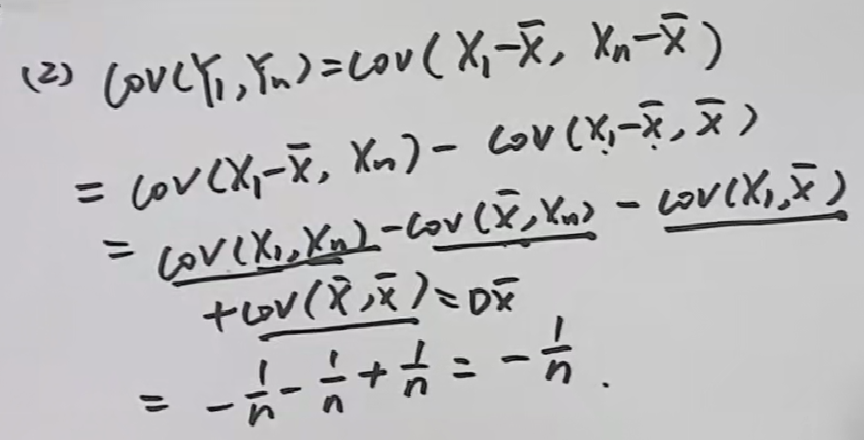 (2) Cov(Y₁,Yₙ)=Cov(X₁-X̄, Xₙ-X̄)
= Cov(X₁-X̄, Xₙ) - Cov(X₁-X̄, X̄)
= Cov(X₁,Xₙ)-Cov(X̄,Xₙ) - Cov(X₁,X̄)
+Cov(X̄,X̄)=DX̄
= -1/n - 1/n + 1/n = -1/n .